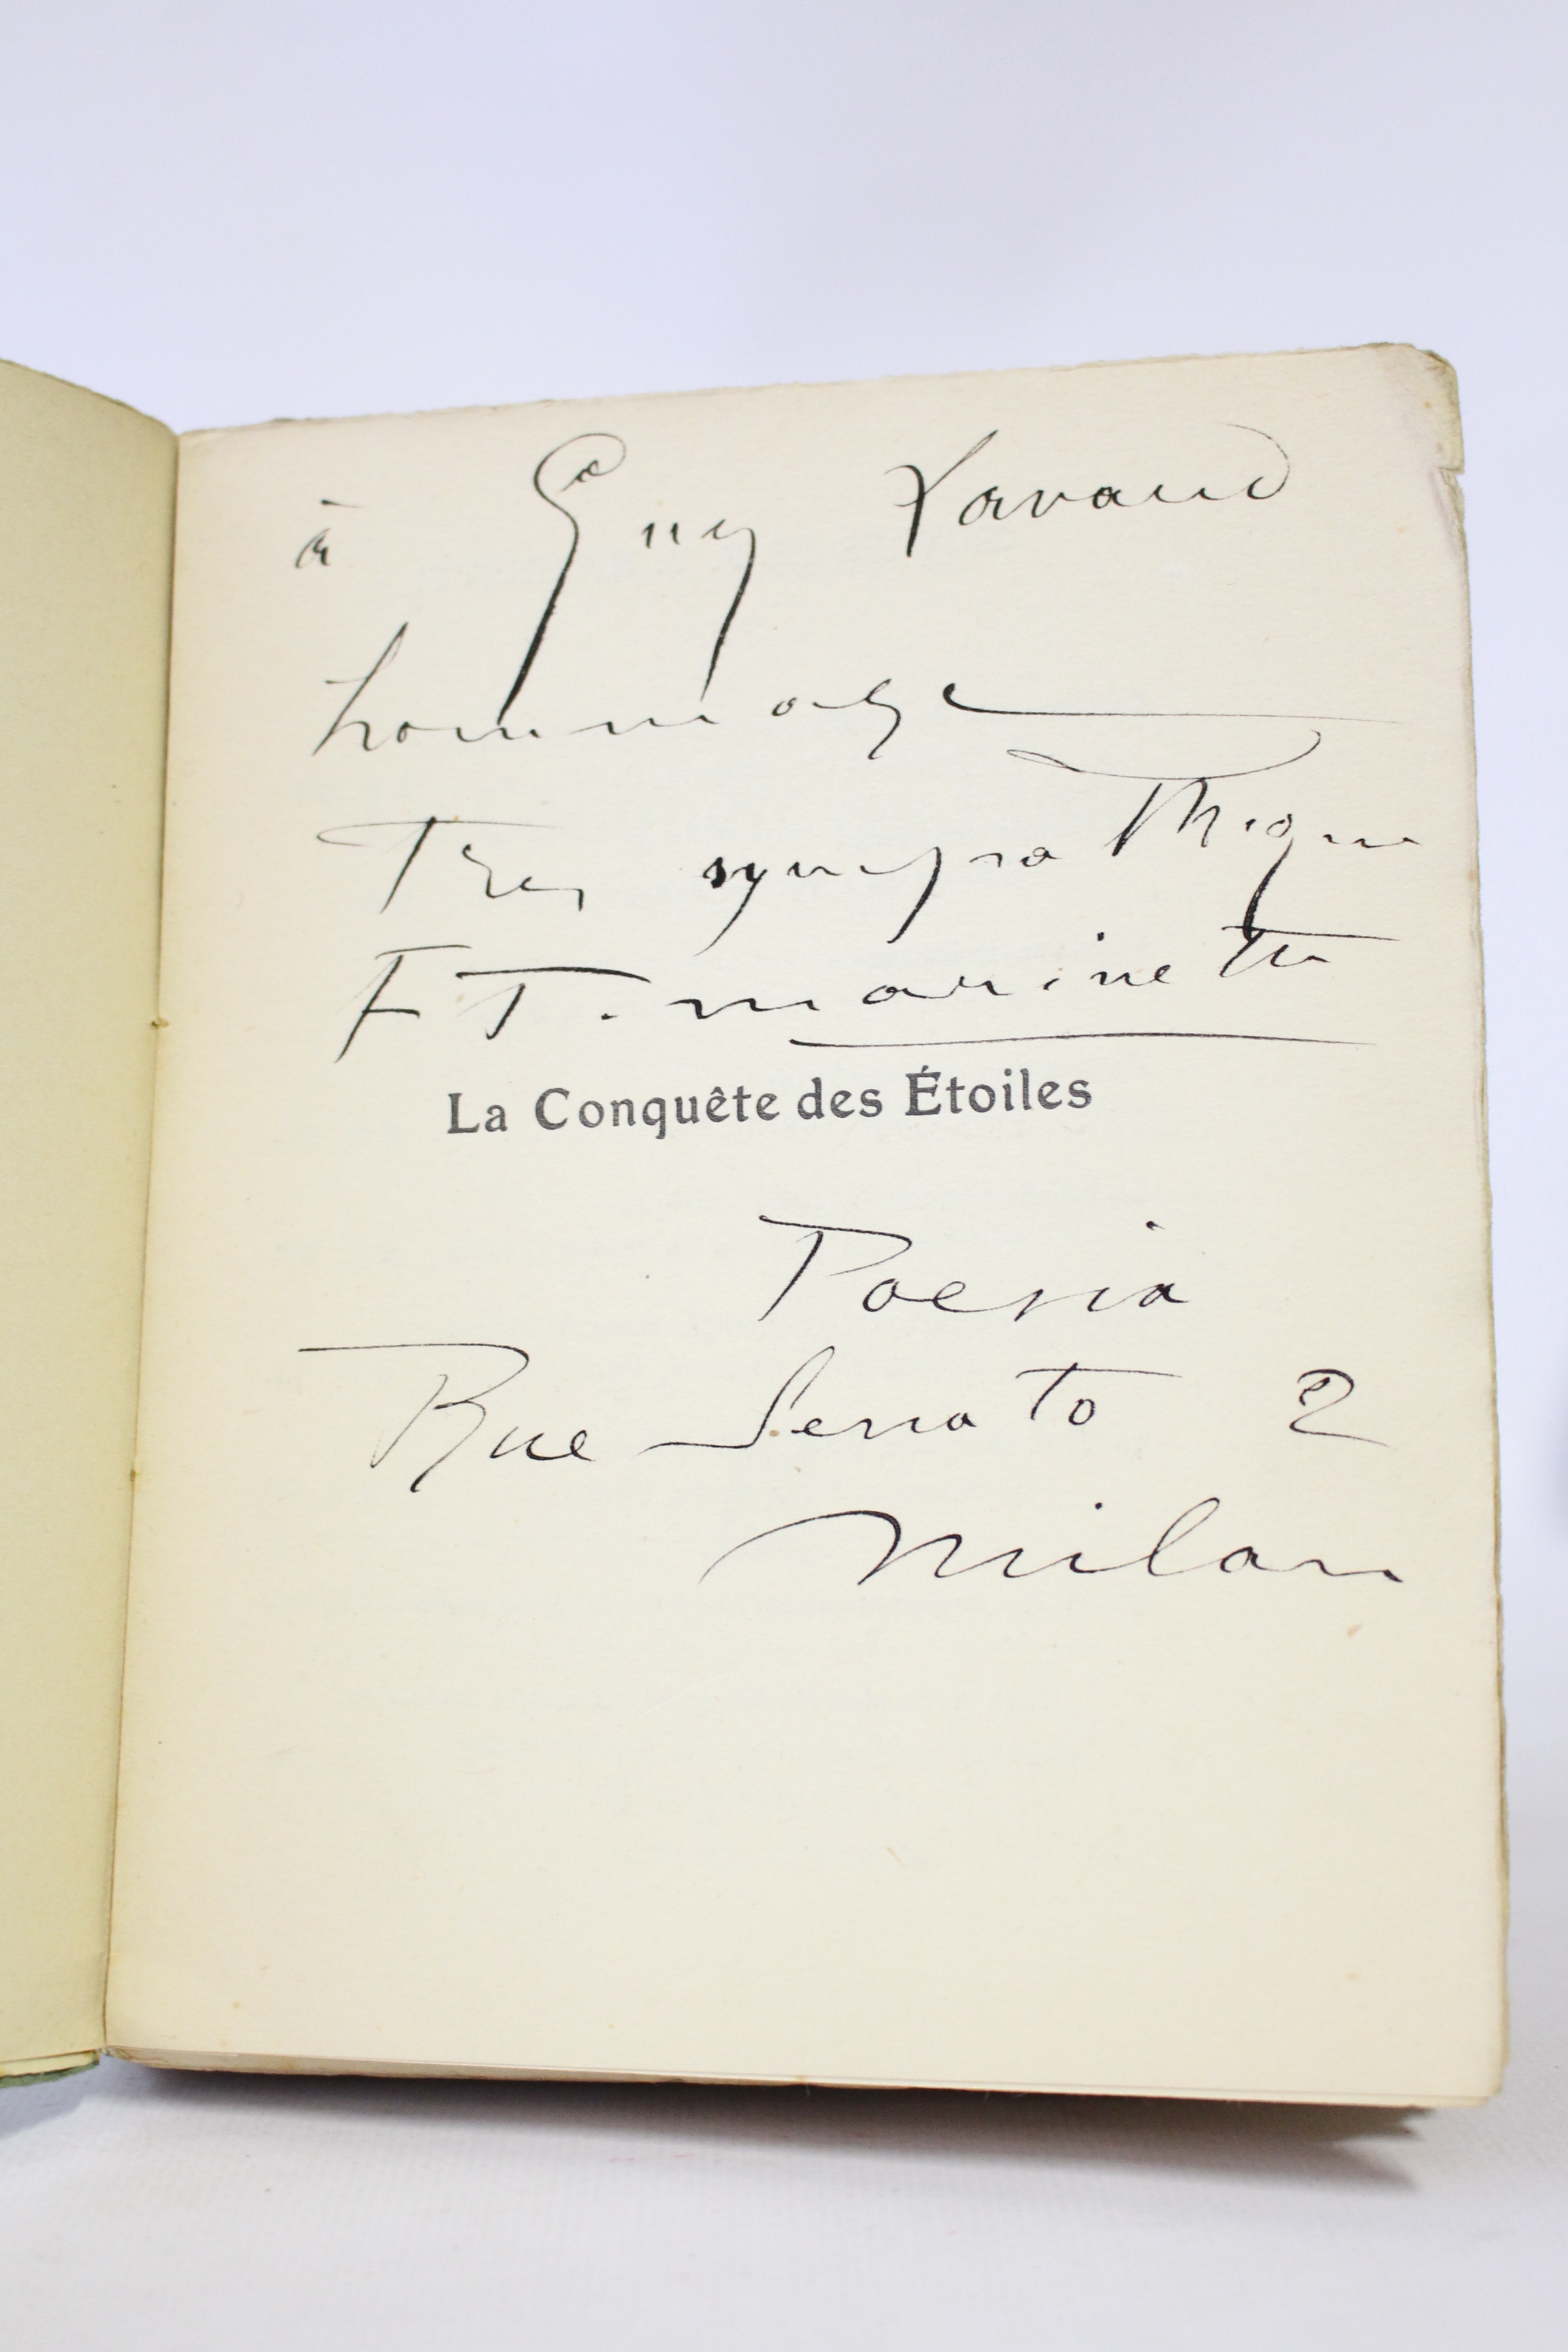 à Guy Lavaud
hommage
Très sympathique
F T. Marinetti
La Conquête des Étoiles
Poesia
Rue Senato 2
Milan